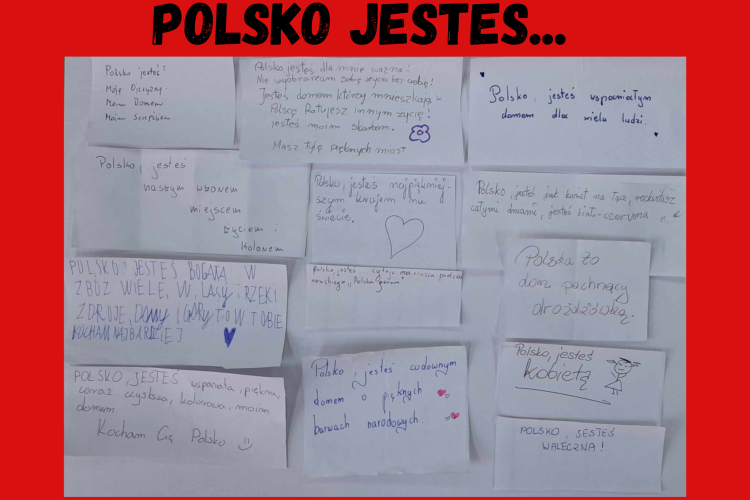 POLSKO JESTES...
Polsko jesteś!
Moją Ojczyzną.
Moim Domem
Moim
Polsko, jesteś dla mnie ważna!
Nie wyobrażam sobie życia bez ciebie!
Jesteś domem który mnieszkają w
Polsce. Ratujesz innym życie!
jesteś moim skarbem.
Masz Tyle pięknych miast
Polsko, jesteś wspaniałym
domem dla wielu ludzi.
Polsko, jesteś
naszym
miejscem
życiem i
kolorem
Polsko, jesteś najpiękniej-
szym krajem na
świecie.
Polsko, jesteś jak kwiat na
całymi dniami, jesteś biało-czerwona
POLSKO JESTEŚ BOGATA W
ZBÓŻ WIELE, W LASY i RZEKI
ZDROJE, DOMY I GÓRY TO W TOBIE
KOCHAM NAJBARDZIEJ
Polsko, jesteś
Polska to
dom pachnący
drożdżówką.
Polsko, jesteś
kobietą
POLSKO, JESTEŚ wspaniała, piękna,
coraz czystsza, kolorowa, moim
domem.
Kocham Cię Polsko
Polsko, jesteś cudownym
domem o pięknych
barwach narodowych.
POLSKO, JESTEŚ
WALECZNA!